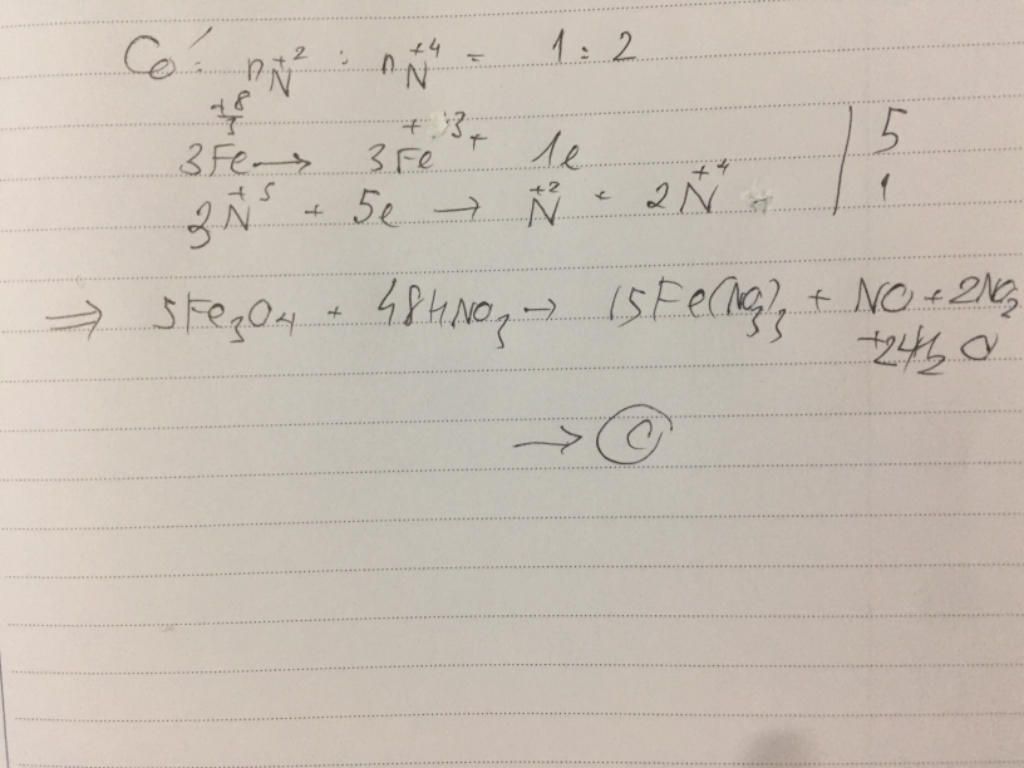 Có: nN⁺² : nN⁺⁴ = 1:2
3Fe⁺⁸/³ → 3Fe⁺³ + 1e | 5
3N⁺⁵ + 5e → N⁺² + 2N⁺⁴ | 1
⇒ 5Fe₃O₄ + 48HNO₃ → 15Fe(NO₃)₃ + NO + 2NO₂
+24H₂O
→ C